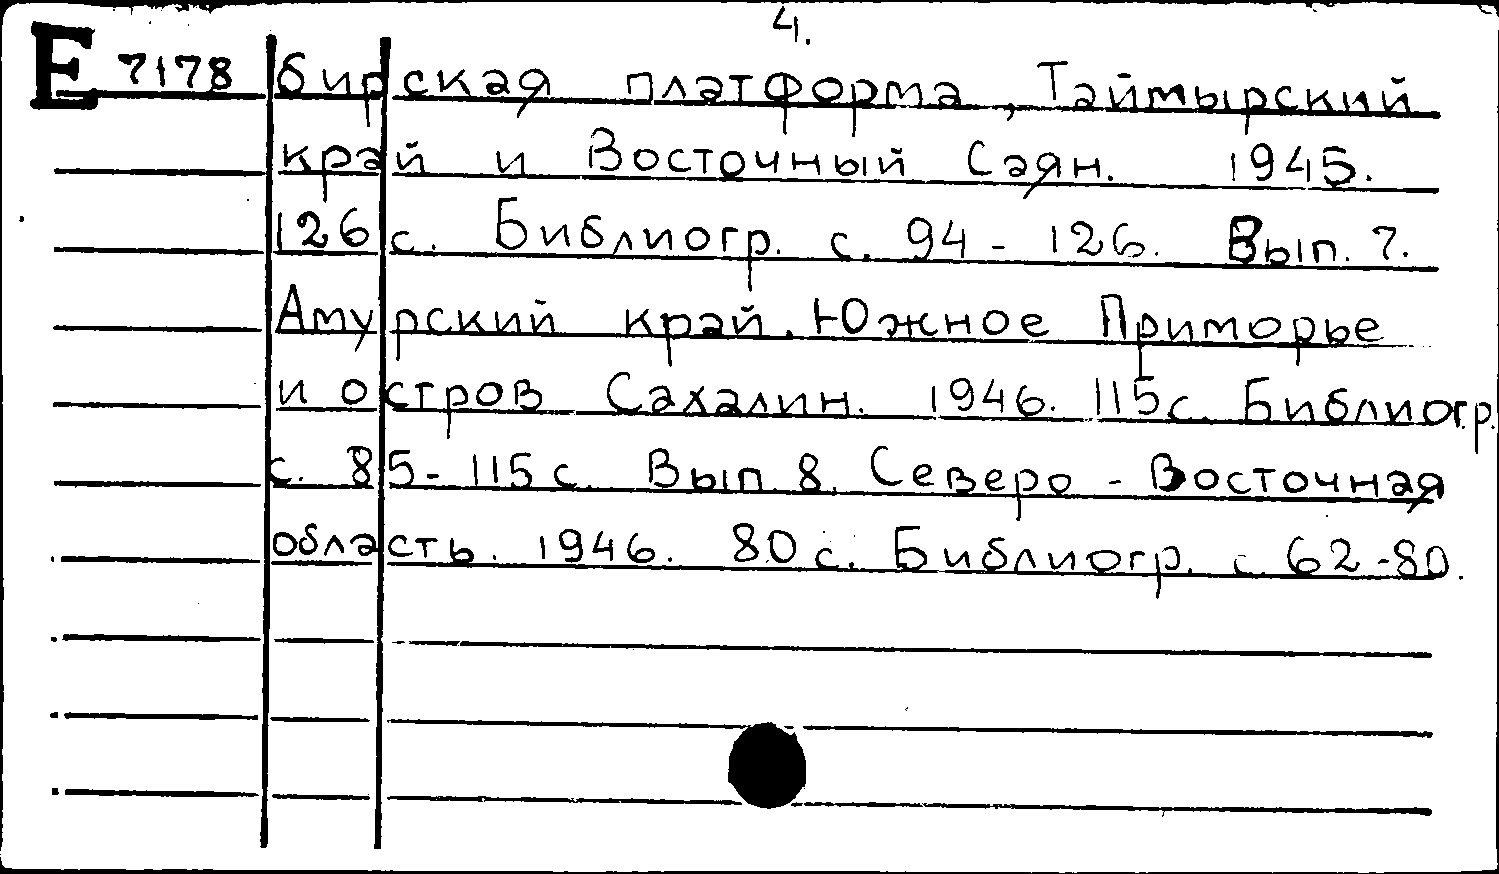 4.
E 7178 бирская платформа, Таймырский
край и Восточный Саян. 1945.
126 с. Библиогр. с. 94-126. Вып. 7.
Амурский край. Южное Приморье
и остров Сахалин. 1946. 115 с. Библиогр.
с. 85-115 с. Вып 8. Северо-Восточная
область. 1946. 80 с. Библиогр. с 62-80.